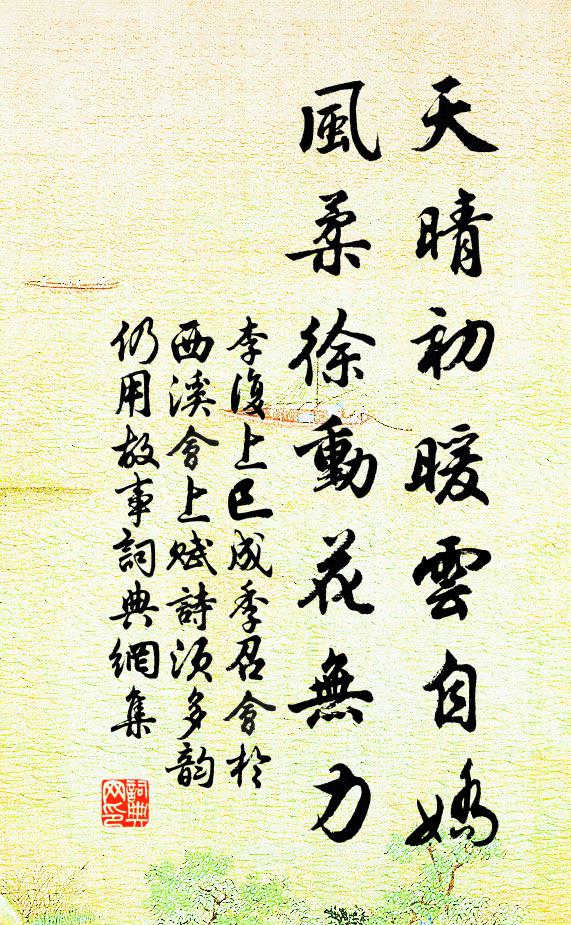 天晴初暖雲自嬌
風柔徐動花無力
李復上巳成季召會於
西溪會上賦詩須多韵
仍用故事詞典網集
詞典网印